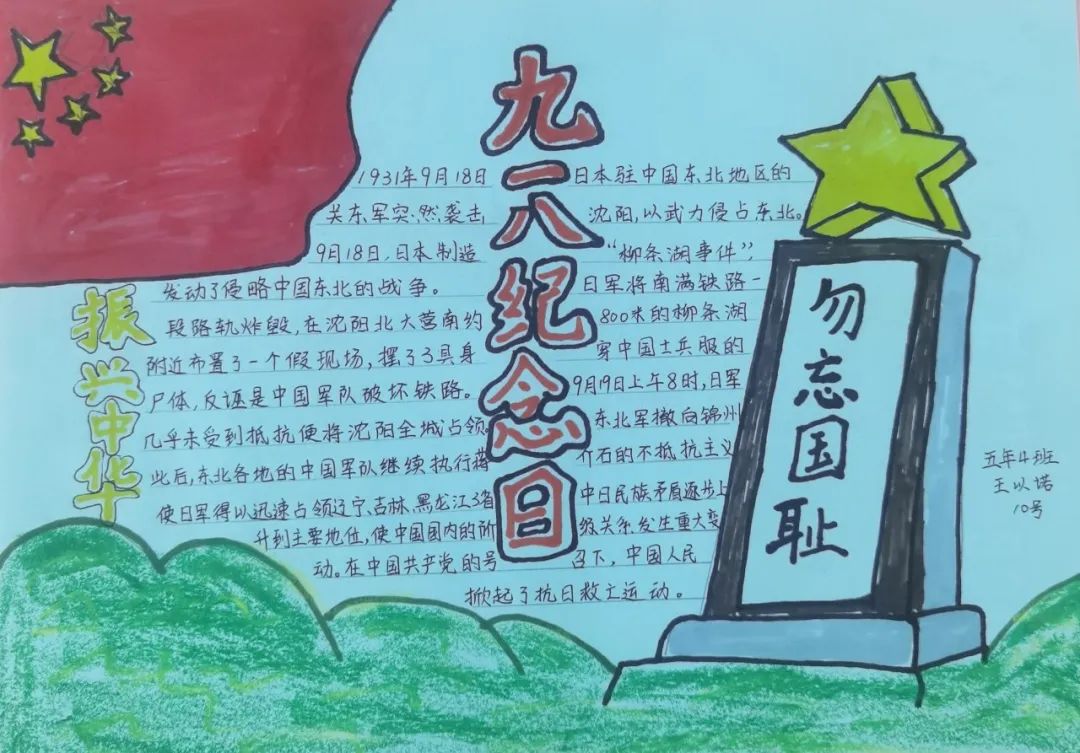 九一八纪念日
振兴中华
1931年9月18日日本驻中国东北地区的
关东军突然袭击沈阳,以武力侵占东北。
9月18日,日本制造“柳条湖事件”,
发动了侵略中国东北的战争。日军将南满铁路一
段路轨炸毁,在沈阳北大营南约800米的柳条湖
附近布置了一个假现场,摆了3具身穿中国士兵服的
尸体,反诬是中国军队破坏铁路。9月19日上午8时,日军
几乎未受到抵抗便将沈阳全城占领。东北军撤向锦州
此后,东北各地的中国军队继续执行蒋介石的不抵抗主义
使日军得以迅速占领辽宁、吉林、黑龙江3省中日民族矛盾逐步上
升到主要地位,使中国国内的阶级关系发生重大变
动。在中国共产党的号召下,中国人民
掀起了抗日救亡运动。
勿忘国耻
五年4班
王以诺
10号